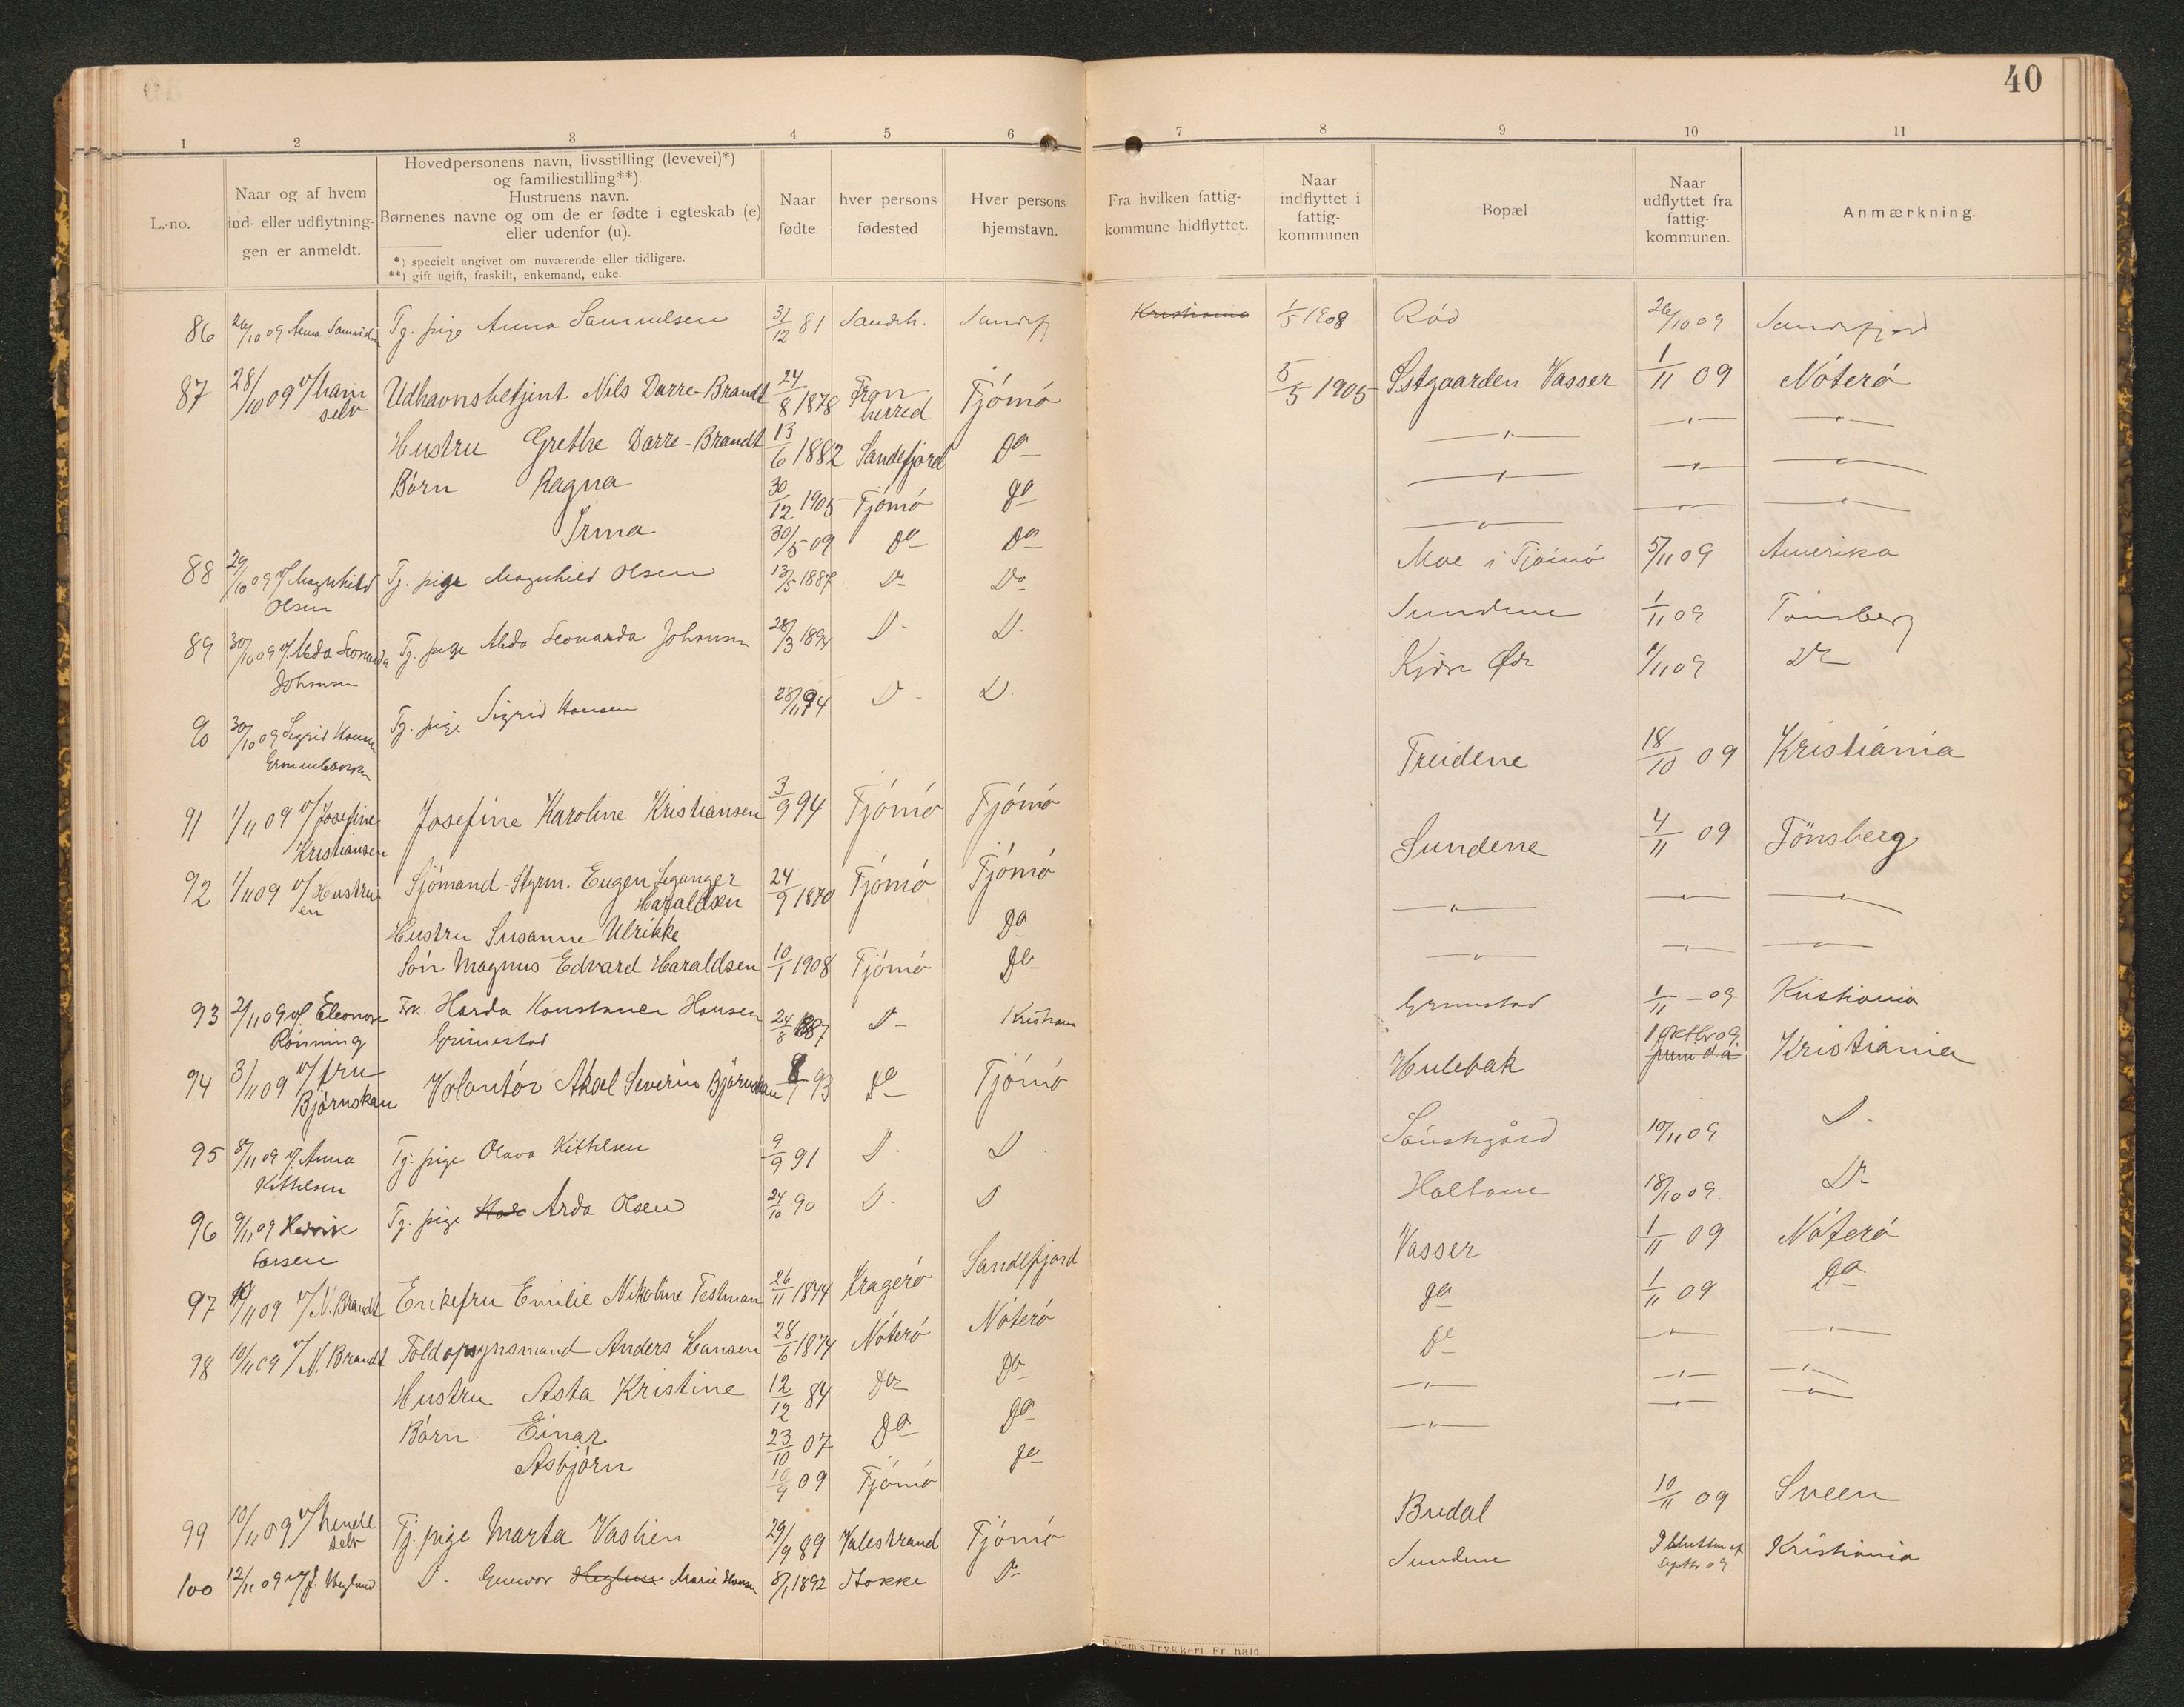 40
1 2 3 4 5 6 7 8 9 10 11
L.-no.
Naar og af hvem
ind- eller udflytnin-
gen er anmeldt.
Hovedpersonens navn, livsstilling (levevei)*)
og familiestilling**).
Hustruens navn.
Børnenes navne og om de er fødte i egteskab (e)
eller udenfor (u).
*) specielt angivet om nuværende eller tidligere.
**) gift ugift, fraskilt, enkemand, enke.
Naar
fødte
hver persons
fødested
Hver persons
hjemstavn.
Fra hvilken fattig-
kommune hidflyttet.
Naar
indflyttet i
fattig-
kommunen
Bopæl
Naar
udflyttet fra
fattig-
kommunen.
Anmærkning.
86 26/10 09 Anna Samuelsen Tg. pige Anna Samuelsen 31/12 81 Sandeh. Sandefj Kristiania 1/5 1908 Rød 26/10 09 Sandefjord
87 28/10 09 v/ ham selv Udhavnsbetjent Nils Darre-Brandt 24/8 1878 Fron herred Tjömö 5/5 1905 Østgaarden Vasser 1/11 09 Nöterö
Hustru Grethe Darre-Brandt 13/6 1882 Sandefjord Do — " — — " — — " —
Börn Ragna 30/12 1905 Tjömö Do — " — — " — — " —
Irma 30/5 09 Do Do — " — — " — — " —
88 29/10 09 v/ Magnhild Olsen Tg. pige Magnhild Olsen 13/5 1887 Do Do Moe i Tjömö 5/11 09 Amerika
89 30/10 09 v/ Alda Leonarda Johansen Tg. pige Alda Leonarda Johansen 28/3 1894 D- D. Sundene 1/11 09 Tönsberg
90 30/10 09 Sigrid Hansen Tg. pige Sigrid Hansen 28/11 94 D- D. Kjære Ødr 1/11 09 Do
91 1/11 09 v/ Josefine Kristiansen Josefine Karoline Kristiansen 3/9 94 Tjömö Tjömö Treidene 18/10 09 Kristiania
92 1/11 09 v/ Hustruen Sjömand-Styrm. Eugen Leganger Haraldsen 24/9 1870 Tjömö Tjömö Sundene 4/11 09 Tönsberg
Hustru Susanne Ulrikke Do — " — — " — — " —
Sön Magnus Edvard Haraldsen 10/1 1908 Tjömö Do — " — — " — — " —
93 2/11 09 v/ Eleonore Rönning Frk. Harda Konstance Hansen Grimestad 24/8 1887 D- Kristiania Grimestad 1/11 - 09 Kristiania
94 3/11 09 v/ fru Björnskau Volontör Aksel Severin Björnskau 8/7 93 Do Tjömö Hulebak 1 oktbr 09. Kristiania
95 8/11 09 v/ Anna Kittilsen Tg. pige Olava Kittilsen 9/9 91 D. D 10/11 09 D.
96 9/11 09 Hedvik Larsen Tg. pige Arda Olsen 24/10 90 D. D Holtane 18/10 09. Do
97 10/11 09 v/ N. Brandt Enkefru Emilie Nikoline Testman 26/11 1844 Kragerö Sandefjord Vasser 1/11 09 Nöterö
98 10/11 09 v/ N. Brandt Toldopsynsmand Anders Hansen 28/6 1874 Nöterö Nöterö Do 1/11 09 Do
Hustru Asta Kristine 12/12 84 Do Do Do — " — — " —
Börn Einar 23/10 07 Do Do — " — — " — — " —
Asbjörn 10/9 09 Tjömö Do — " — — " — — " —
99 10/11 09 v/ hende selv Tj. pige Marta Vaslien 29/9 89 Valestrand Tjömö Budal 10/11 09 Sveen
100 12/11 09 v/ J. Høglund D. Gunvor Marie Hansen 8/1 1892 Stokke Do Sundene I slutten af Septbr 09 Kristiania